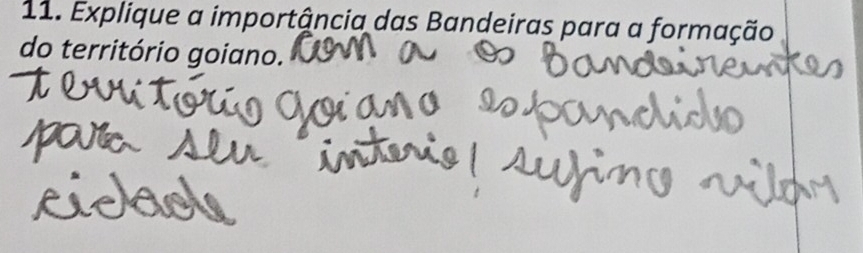 11. Explique a importância das Bandeiras para a formação
do território goiano. com a os bandeirentes
território goiano espandido
para seu interio! sufino vilar
cidade